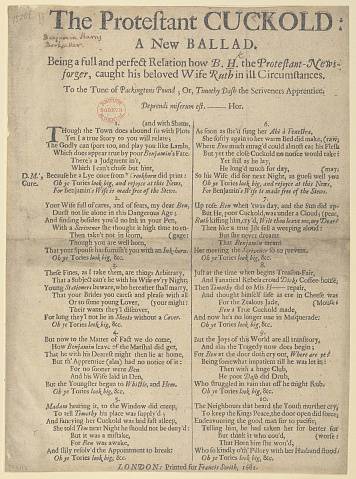 The Protestant CUCKOLD:
A New BALLAD.
Being a full and perfect Relation how B. H. the Protestant-News-
forger, caught his beloved Wife Ruth in ill Circumstances.
To the Tune of Packingtons Pound; Or, Timothy Dash the Scriveners Apprentice.
Deprendi miserum est. —— Hor.
1.
(and with Shams,
THough the Town does abound so with Plots
Yet I a true Story to you will relate:
The Godly can sport too, and play you like Lambs,
Which does appear true by poor Benjamin's Fate.
There's a Judgment in't,
Which I can't chuse but hint,
D.M.'s
Cure.
Because he a Lye once from did print:
Oh ye Tories look big, and rejoice at this News,
For Benjamin's Wife is made free of the Stews.
2.
Your Wife full of cares, and of fears, my dear Ben,
Durst not lie alone in this Dangerous Age;
And finding besides you'd no Ink in your Pen,
With a Scrivener she thought it high time to en-
Then take't not in scorn, (gage:
Though you are born,
That your Spouse has furnish'd you with an Ink-horn.
Oh ye Tories look big, &c.
3.
These Fines, as I take them, are things Arbitrary,
That a Subject can't lie with his Wife ev'ry Night;
Young Stationers beware, who hereafter shall marry,
That your Brides you caress and please with all
Or to some young Lover, (your might:
Their wants they'l discover,
For long they'l not lie in Sheets without a Cover.
Oh ye Tories look big, &c.
4.
But now to the Matter of Fact we do come,
How Benjamin leave of the Marshal did get,
That he with his Dearest might then lie at home,
But th' Apprentice (alas) had no notice of it:
For no sooner were Ben
And his Wife laid in Den,
But the Youngster began to Whistle, and Hem.
Oh ye Tories look big, &c.
5.
Madam hearing it, to the Window did creep,
To tell Timothy his place was supply'd;
And fancying her Cuckold was fast asleep,
She told Tim next Night he should not be deny'd:
But it was a mistake,
For Ben was awake,
And slily resolv'd the Appointment to break:
Oh ye Tories look big, &c.
6.
As soon as she'd sung her
She softly again to her warm Bed did make, (raw;
Where Ben much urmag'd could almost eat his Flesh
But yet the close Cuckold no notice would take:
Yet still as he lay,
He long'd much for day, (may:
So his Wife did for next Night, as guess well you
Oh ye Tories look big, and rejoice at this News,
For Benjamin's Wife is made free of the Stews.
7.
Up rose Ben when 'twas day, and the Sun did ap-
But He, poor Cuckold, was under a Cloud; (pear,
Ruth kissing him, cry'd, Wilt thou leave me, my Dear?
Then like a true Jilt fell a weeping aloud:
But she never dream't
That Benjamin meant
Her meeting the Scrivener so to prevent.
Oh ye Tories look big, &c.
8.
Just at the time when begins Treason-Fair,
And Factious Rebels crowd Coffee-house,
Then Timothy did to Mrs H—— repair,
And thought himself safe as one in Cheese was
For the Zealous Jilt, (Mouse:
For a True Cuckold made,
And now he's no longer one in Masquerade:
Oh ye Tories look big, &c.
9.
But the Joys of this World are all transitory,
And as the Tragedy now does begin;
For Ben at the door doth cry out, Where are ye?
Being somewhat impatient till he was let in:
Then with a huge Club,
He poor Dash did Drub,
Who struggled in vain that off he might Rub.
Oh ye Tories look big, &c.
10.
The Neighbours that heard the Youth murther cry,
To keep the King's Peace, the door open did force;
Endeavouring the good man for to pacifie,
Telling him, he had taken her for better for
But think it who wou'd, (worse:
That Horn him she wou'd,
Who so kindly oft' Pillory with her Husband stood?
Oh ye Tories look big, &c.
LONDON: Printed for Francis Smith, 1681.